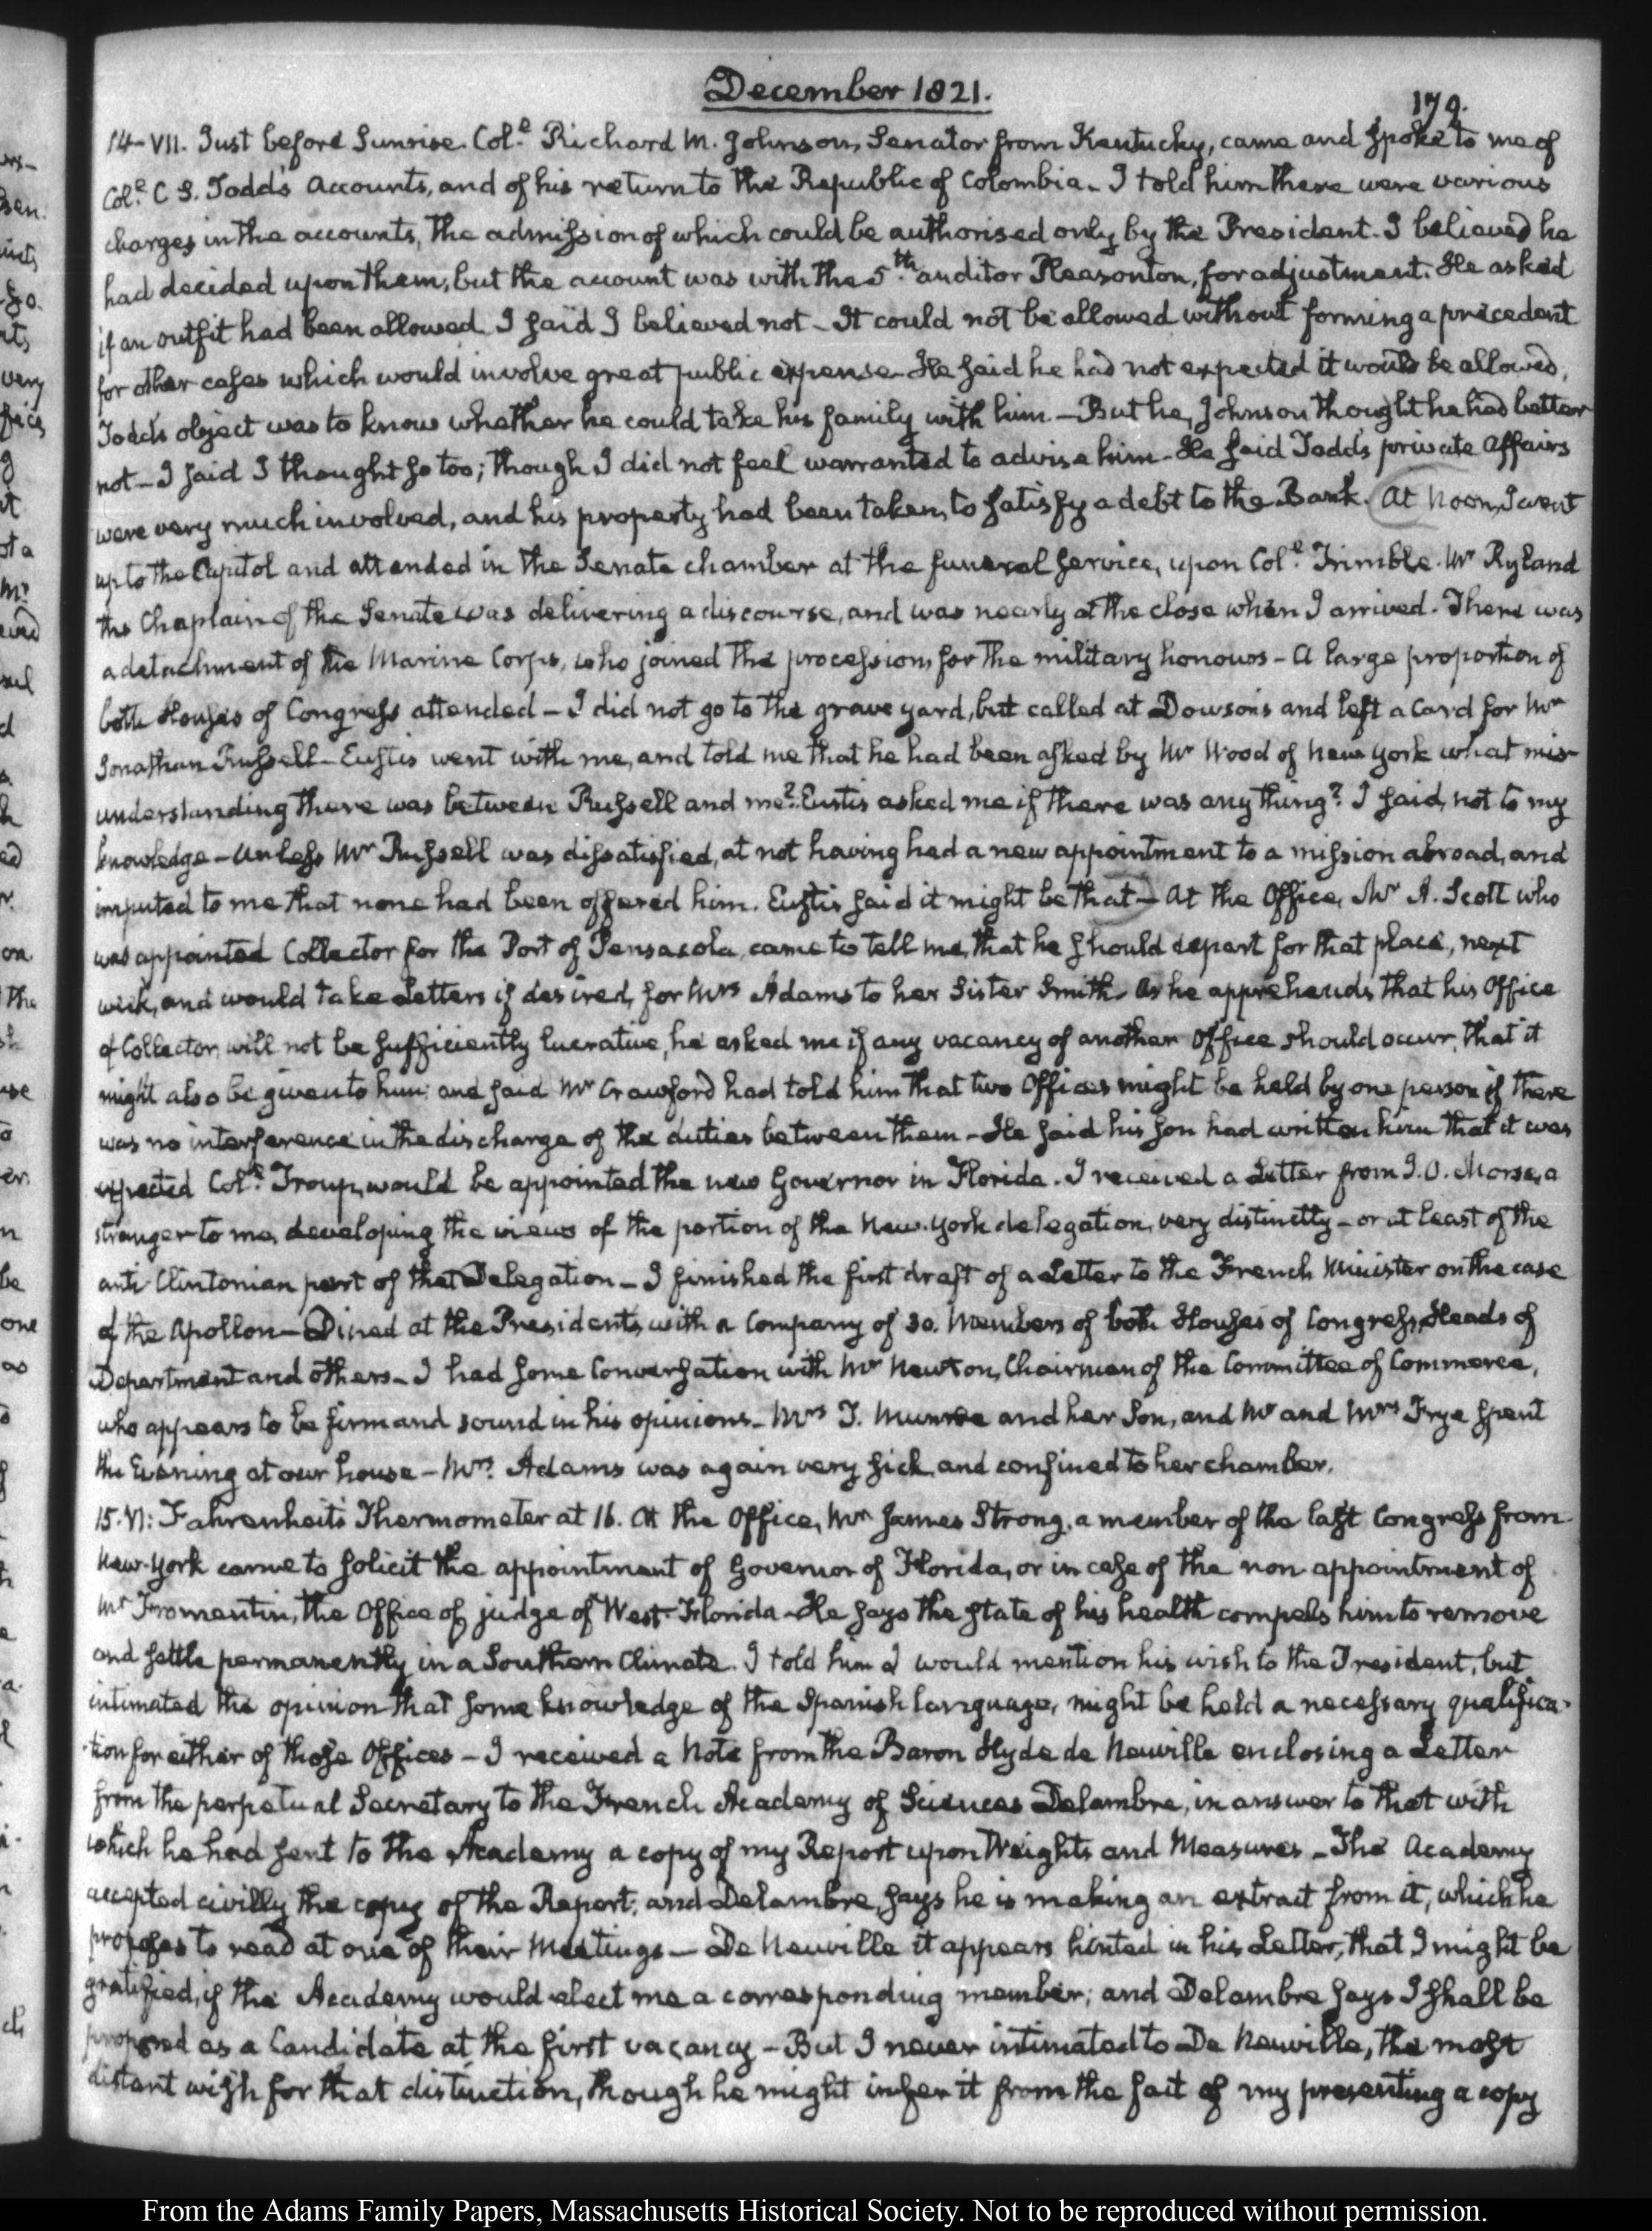 December 1821.
179.
14. VII. Just before Sunrise. Col.e Richard M. Johnson, Senator from Kentucky, came and spoke to me of
Col.e C S. Todd's Accounts, and of his return to the Republic of Colombia. I told him there were various
charges in the accounts, the admission of which could be authorised only by the President. I believed he
had decided upon them, but the account was with the 5.th auditor Pleasonton, for adjustment. He asked
if an outfit had been allowed. I said I believed not – It could not be allowed without forming a precedent
for other cases which would involve great public expense – He said he had not expected it would be allowed,
Todd's object was to know whether he could take his family with him – But he, Johnson thought he had better
not – I said I thought so too; though I did not feel warranted to advise him – He said Todd's private affairs
were very much involved, and his property had been taken, to satisfy a debt to the Bank. At Noon, I went
up to the Capitol and attended in the Senate chamber at the funeral service, upon Col.e Trimble. Mr Ryland
the Chaplain of the Senate was delivering a discourse, and was nearly at the close when I arrived. There was
a detachment of the Marine Corps, who joined the procession, for the military honours – A large proportion of
both Houses of Congress attended – I did not go to the grave yard, but called at Dowson's and left a Card for Mr
Jonathan Russell – Eustis went with me, and told me that he had been asked by Mr Wood of New York what mis-
understanding there was between Russell and me? Eustis asked me if there was any thing? I said, not to my
knowledge – Unless Mr Russell was dissatisfied, at not having had a new appointment to a mission abroad, and
imputed to me that none had been offered him. Eustis said it might be that – At the Office, Mr A. Scott who
was appointed Collector for the Port of Pensacola, came to tell me, that he should depart for that place, next
week, and would take Letters if desired, for Mrs Adams to her Sister Smith. As he apprehends that his Office
of Collector, will not be sufficiently lucrative, he asked me if any vacancy of another Office should occur, that it
might also be given to him; and said Mr Crawford had told him that two Offices might be held by one person if there
was no interference in the discharge of the duties between them – He said his son had written him that it was
expected Col.e Troup, would be appointed the new Governor in Florida. I received a Letter from J. O. Morse, a
stranger to me, developing the views of the portion of the New-York delegation, very distinctly – or at least of the
anti Clintonian part of that Delegation – I finished the first draft of a Letter to the French Minister on the case
of the Apollon – Dined at the President's, with a Company of 30. Members of both Houses of Congress, Heads of
Department and others – I had some Conversation with Mr Newton, Chairman of the Committee of Commerce,
who appears to be firm and sound in his opinions – Mrs T. Munroe and her Son, and Mr and Mrs Frye spent
the Evening at our house – Mrs Adams was again very sick, and confined to her chamber.
15. VI: Fahrenheit's Thermometer at 16. At the Office, Mr James Strong, a member of the last Congress from
New-York came to solicit the appointment of Governor of Florida, or in case of the non appointment of
Mr Fromentin, the Office of judge of West-Florida – He says the state of his health compels him to remove
and settle permanently in a Southern Climate. I told him I would mention his wish to the President, but
intimated the opinion that some knowledge of the Spanish language, might be held a necessary qualifica-
-tion for either of those Offices – I received a Note from the Baron Hyde de Neuville enclosing a Letter
from the perpetual Secretary to the French Academy of Sciences Delambre, in answer to that with
which he had sent to the Academy a copy of my Report upon Weights and Measures – The Academy
accepted civilly the copy of the Report; and Delambre, says he is making an extract from it, which he
proposes to read at one of their Meetings – De Neuville it appears hinted in his Letter, that I might be
gratified, if the Academy would elect me a corresponding member; and Delambre says I shall be
proposed as a Candidate at the first vacancy – But I never intimated to De Neuville, the most
distant wish for that distinction, though he might infer it from the fact of my presenting a copy
From the Adams Family Papers, Massachusetts Historical Society. Not to be reproduced without permission.